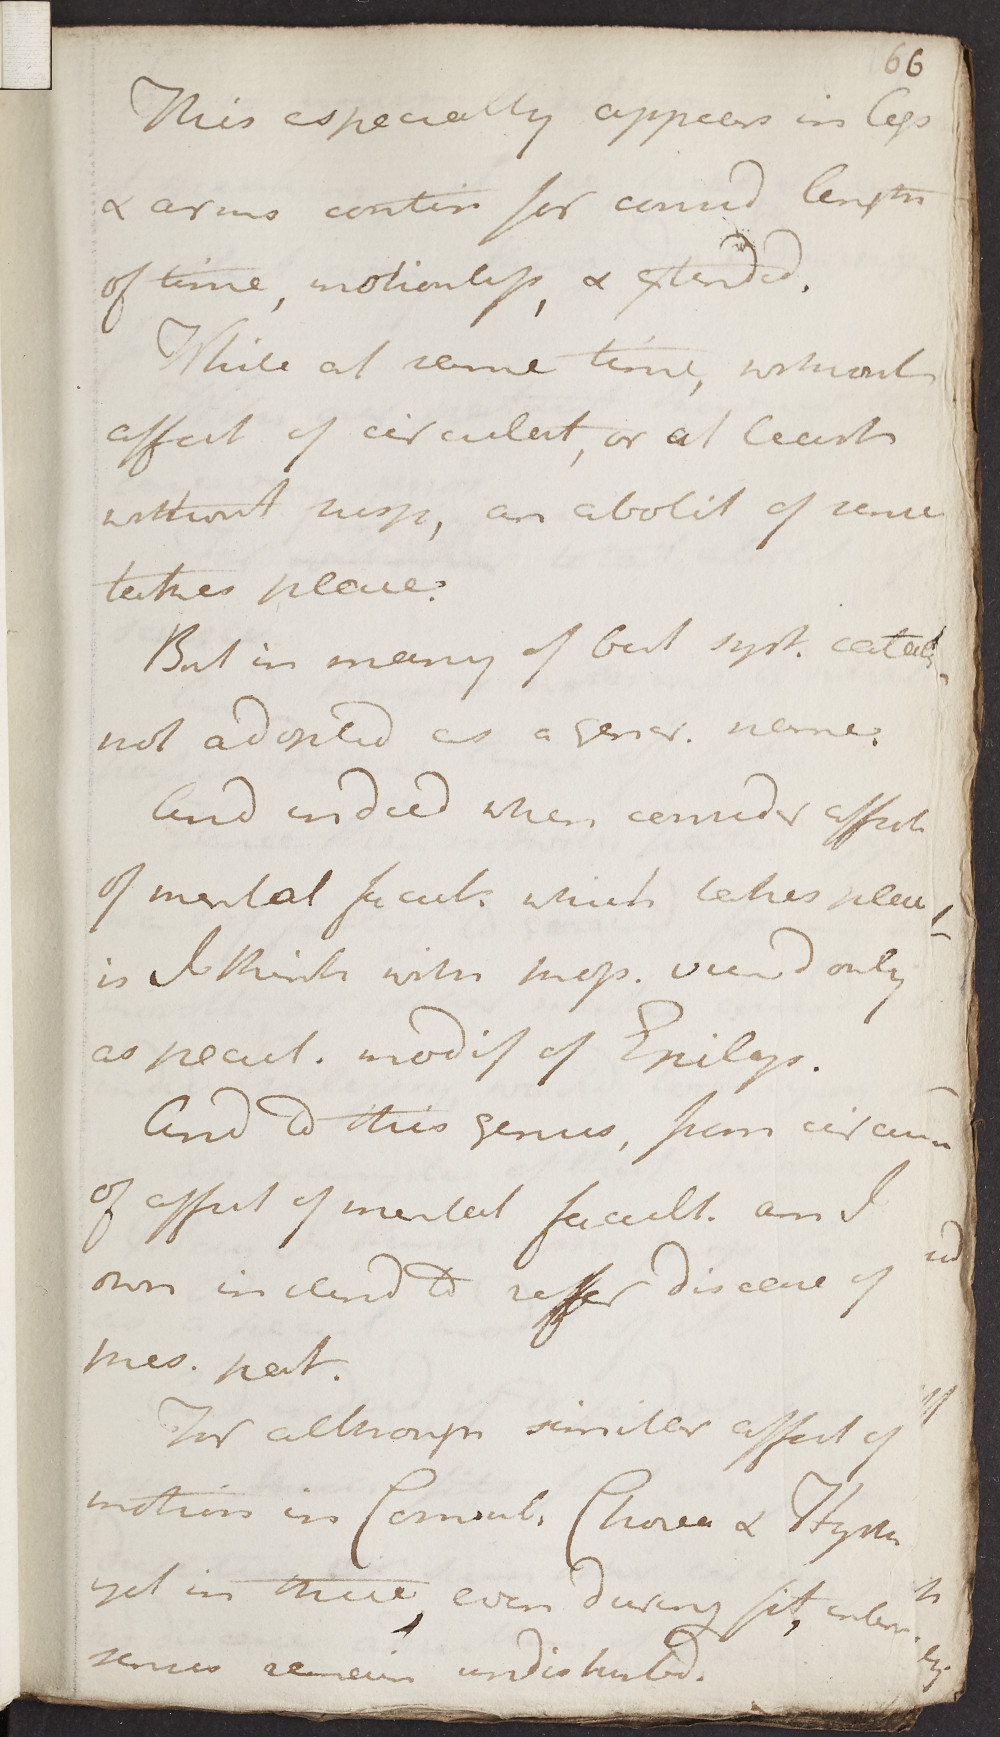 66
This especially appears in legs
& arms contin for consid length
of time, motionless, & extended.
While at same time, without
affect of circulat, or at least
without resp, an abolit of sense
takes place.
But in many of best syst. catal
not adopted as a gener. name.
And indeed when consider affect
of mental facult. which takes place
is I think with prop. viewd only
as pecul. modif of Epileps.
And to this genus, from circum
of affect of mental facult. am I
own inclind to reffer disease of
pres. pat.
For although similar affect of
motion in Convuls. Chorea & Hyster
yet in these, even during fit, intern.
senses remain undisturbd.